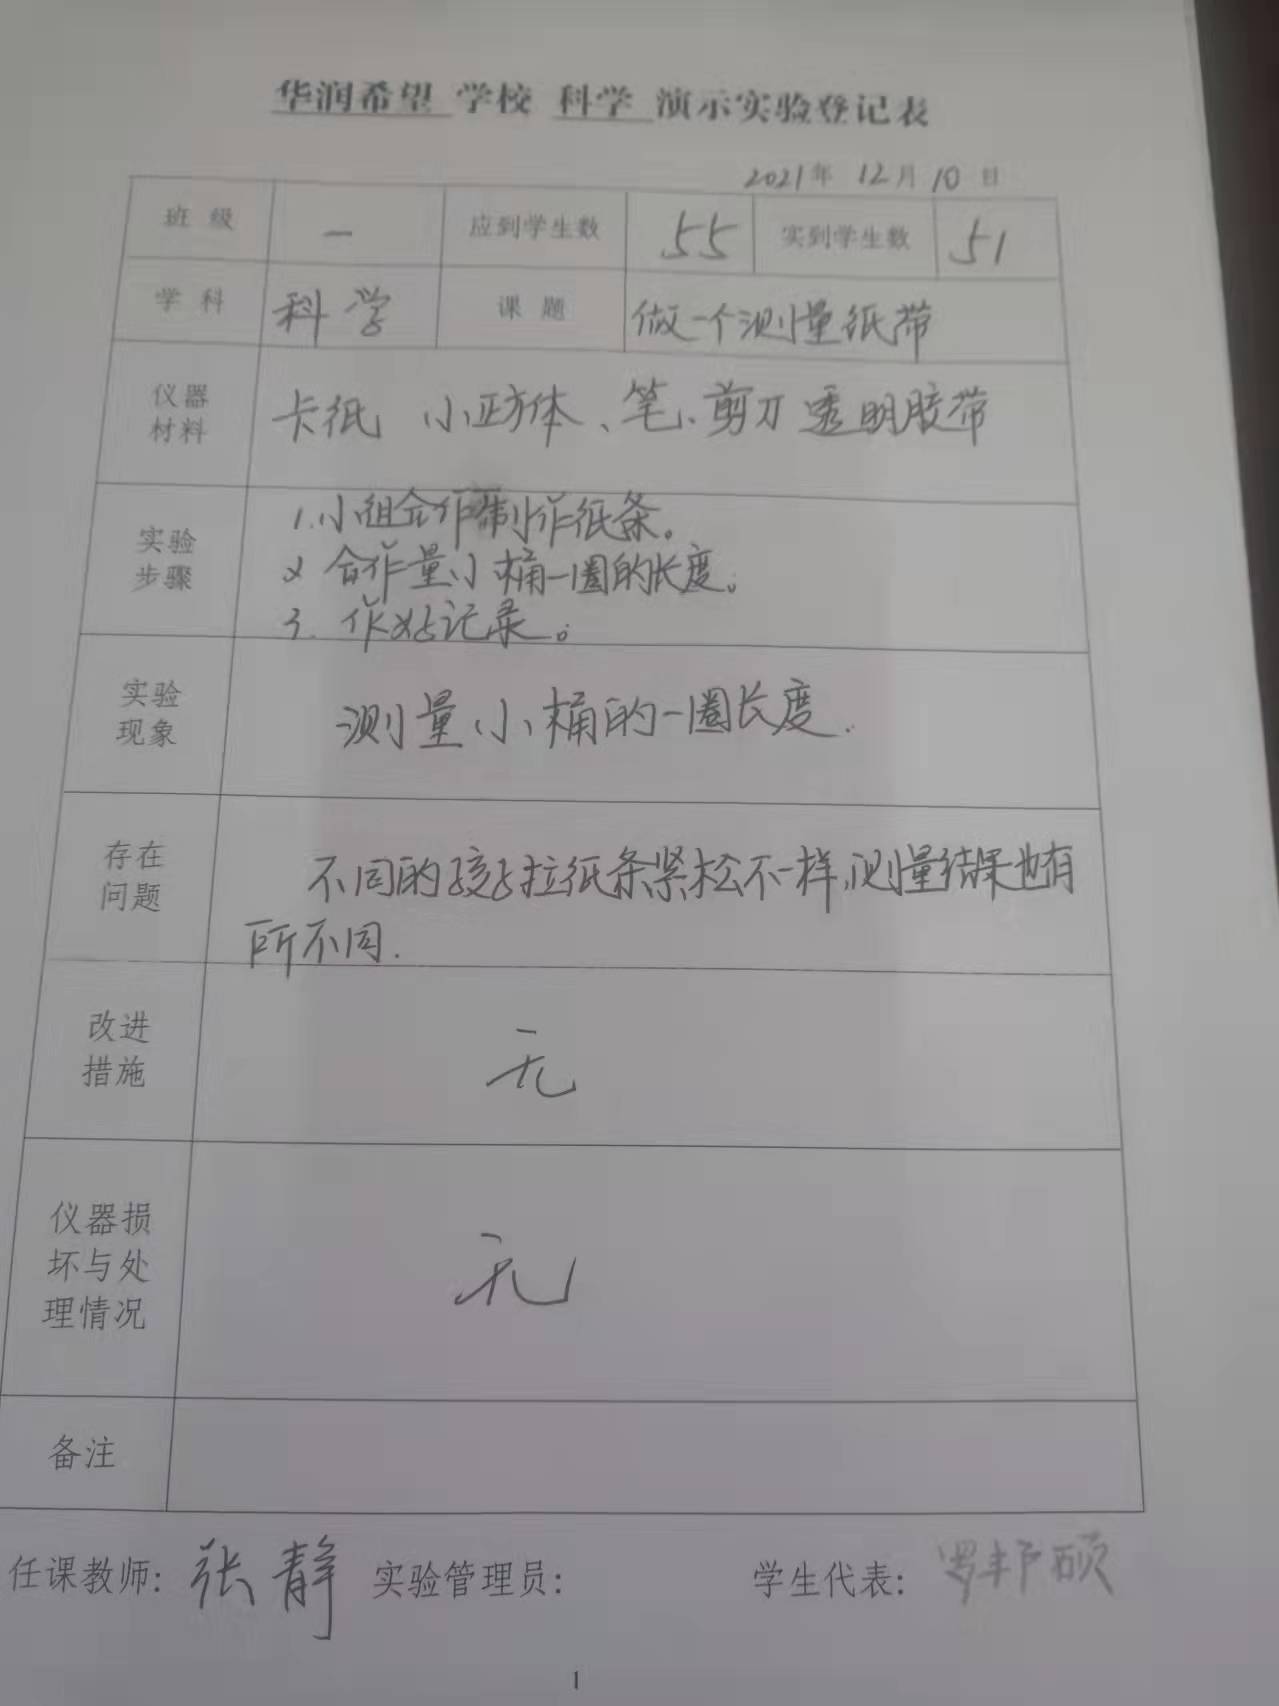 华润希望 学校 科学 演示实验登记表
2021年 12月10日
班级 一 应到学生数 55 实到学生数 51
学科 科学 课题 做一个测量纸带
仪器
材料
卡纸 小正方体、笔、剪刀 透明胶带
实验
步骤
1.小组合作制作纸条。
2 合作量小桶一圈的长度。
3. 作好记录。
实验
现象
测量小桶的一圈长度.
存在
问题
不同的孩子拉纸条紧松不一样,测量结果也有
所不同.
改进
措施
无
仪器损
坏与处
理情况
无
备注
任课教师: 张静 实验管理员: 学生代表: 罗邦硕
1